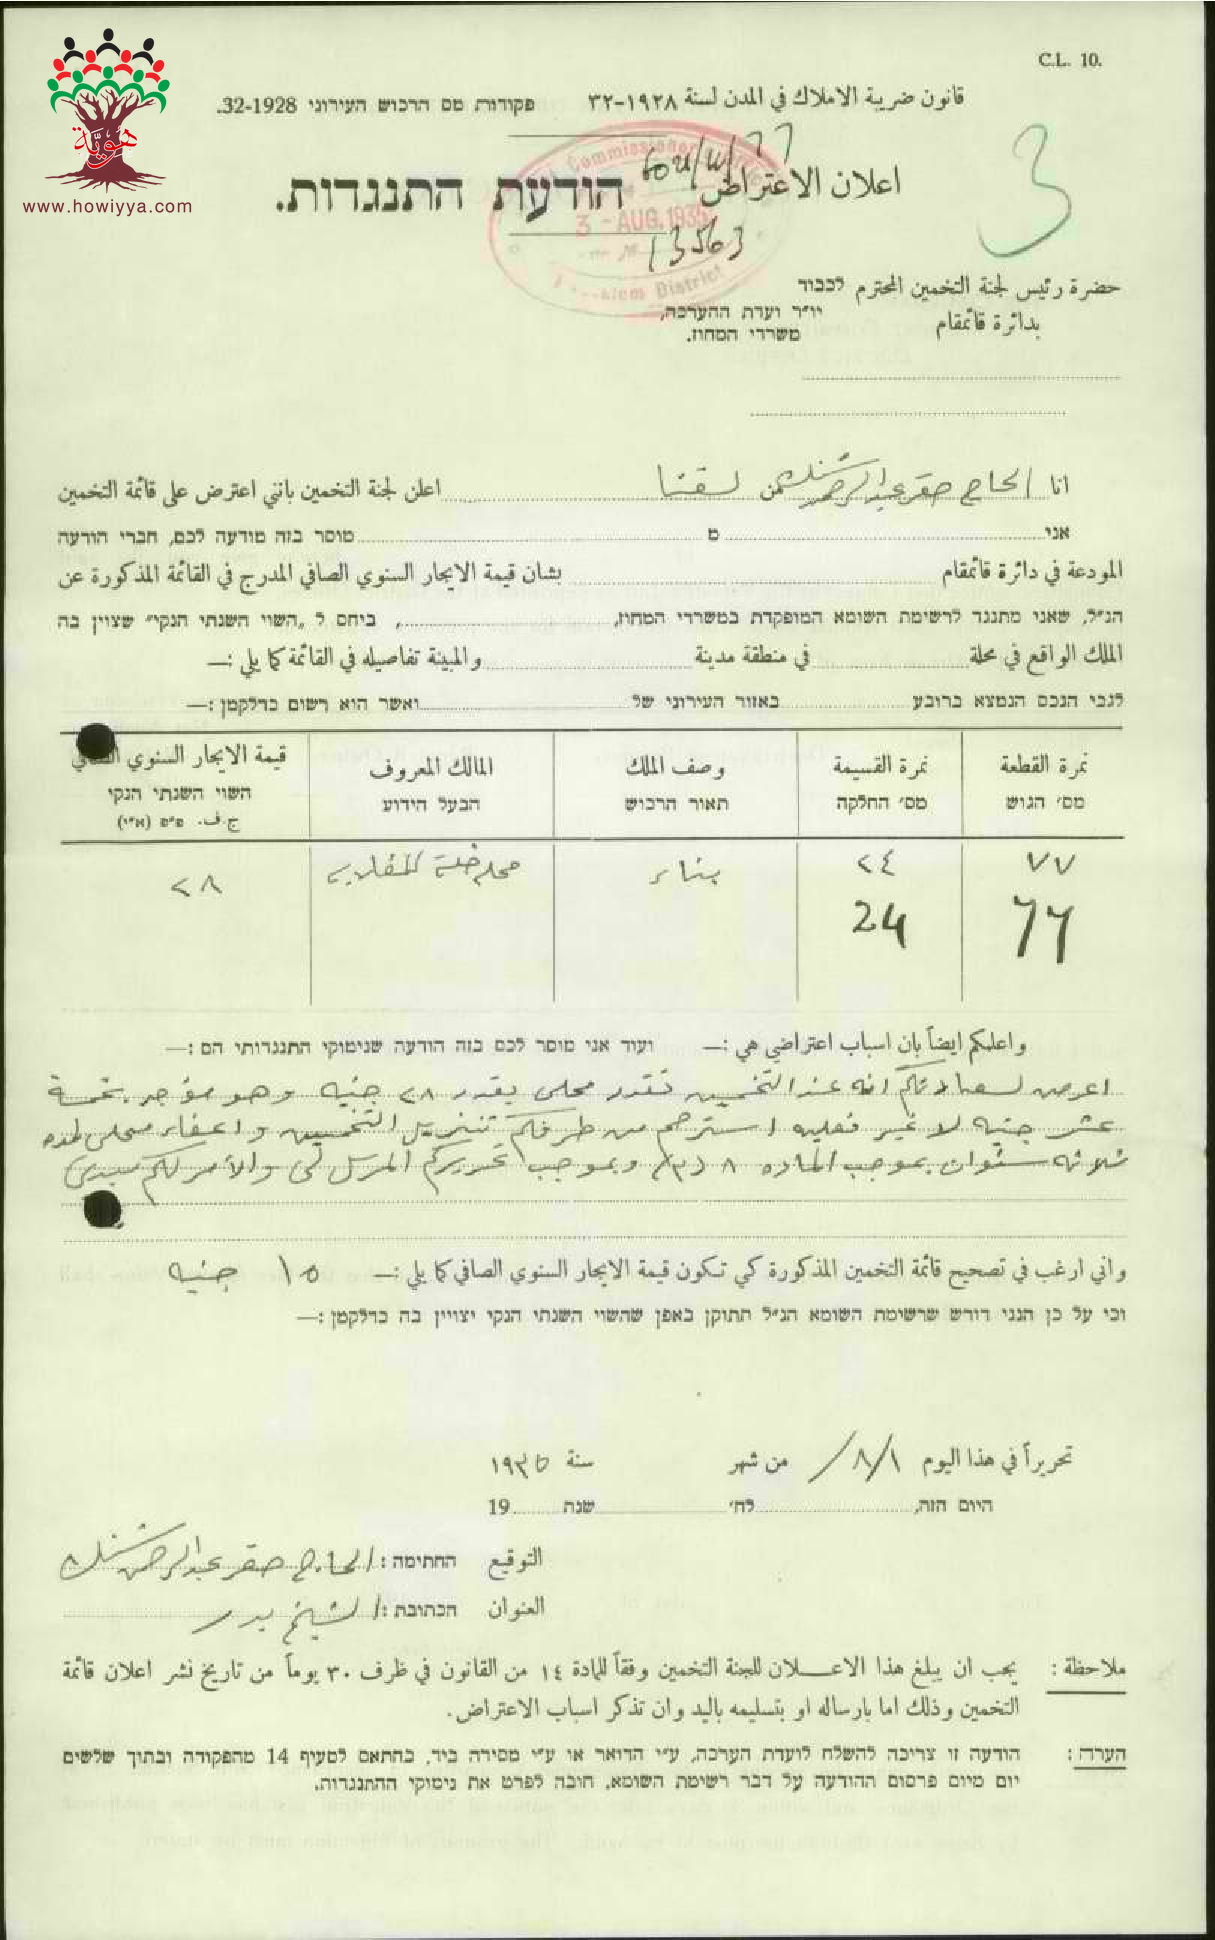 C.L. 10.
هوية
www.howiyya.com
قانون ضريبة الاملاك في المدن لسنة ١٩٢٨-٣٢ פקודות מס הרכוש העירוני 1928-32.
3
77
اعلان الاعتراض הודעת התנגדות.
Commissioner
3 - AUG. 1935
13563
District
حضرة رئيس لجنة التخمين المحترم לכבוד
יו״ר ועדת ההערכה,
بدائرة قائمقام משרדי המחוז.
انا الحاج صقر عبد الرحمن من لفتا اعلن لجنة التخمين بانني اعترض على قائمة التخمين
אני מ מוסר בזה מודעה לכם, חברי הודעה
المودعة في دائرة قائمقام بشان قيمة الايجار السنوي الصافي المدرج في القائمة المذكورة عن
הנ״ל, שאני מתנגד לרשימת השומא המופקדת במשרדי המחוז, ביחס ל „השוי השנתי הנקי״ שצוין בה
الملك الواقع في محلة في منطقة مدينة والمبينة تفاصيله في القائمة كما يلي :—
לגבי הנכס הנמצא ברובע באזור העירוני של ואשר הוא רשום כדלקמן :—
نمرة القطعة نمرة القسيمة وصف الملك المالك المعروف قيمة الايجار السنوي الصافي
מס׳ הגוש מס׳ החלקה תאור הרכוש הבעל הידוע השוי השנתי הנקי
ج.ف. פ״מ (א״י)
٧٧ ٢٤ بناء ٢٨
77 24
واعلمكم ايضاً بان اسباب اعتراضي هي :— ועוד אני מוסר לכם בזה הודעה שנימוקי התנגדותי הם :—
اعرض لسعادتكم انه عند التخمين تقدر محلي بقدر ٢٨ جنيه وهو مؤجر بخمسة
عشر جنيه لا غير فعليه استرحم من طرفكم تنزيل التخمين واعفاء محلي لمدة
ثلاثة سنوات بموجب المادة ٨ وبموجب تحريركم المرسل لي والأمر لكم سيدي
واني ارغب في تصحيح قائمة التخمين المذكورة كي تكون قيمة الايجار السنوي الصافي كما يلي :— ١٥ جنيه
וכי על כן הנני דורש שרשימת השומא הנ״ל תתוקן באפן שהשוי השנתי הנקי יצויין בה כדלקמן :—
تحريراً في هذا اليوم ٨/١/ من شهر سنة ١٩٣٥
היום הזה, לח׳ שנת 19
التوقيع החתימה : الحاج صقر عبد الرحمن
العنوان הכתובת : الشيخ بدر
ملاحظة : يجب ان يبلغ هذا الاعـــلان للجنة التخمين وفقاً للمادة ١٤ من القانون في ظرف ٣٠ يوماً من تاريخ نشر اعلان قائمة
التخمين وذلك اما بارساله او بتسليمه باليد وان تذكر اسباب الاعتراض.
הערה : הודעה זו צריכה להשלח לועדת הערכה, ע״י הדואר או ע״י מסירה ביד, בהתאם לסעיף 14 מהפקודה ובתוך שלשים
יום מיום פרסום ההודעה על דבר רשימת השומא, חובה לפרט את נימוקי ההתנגדות.